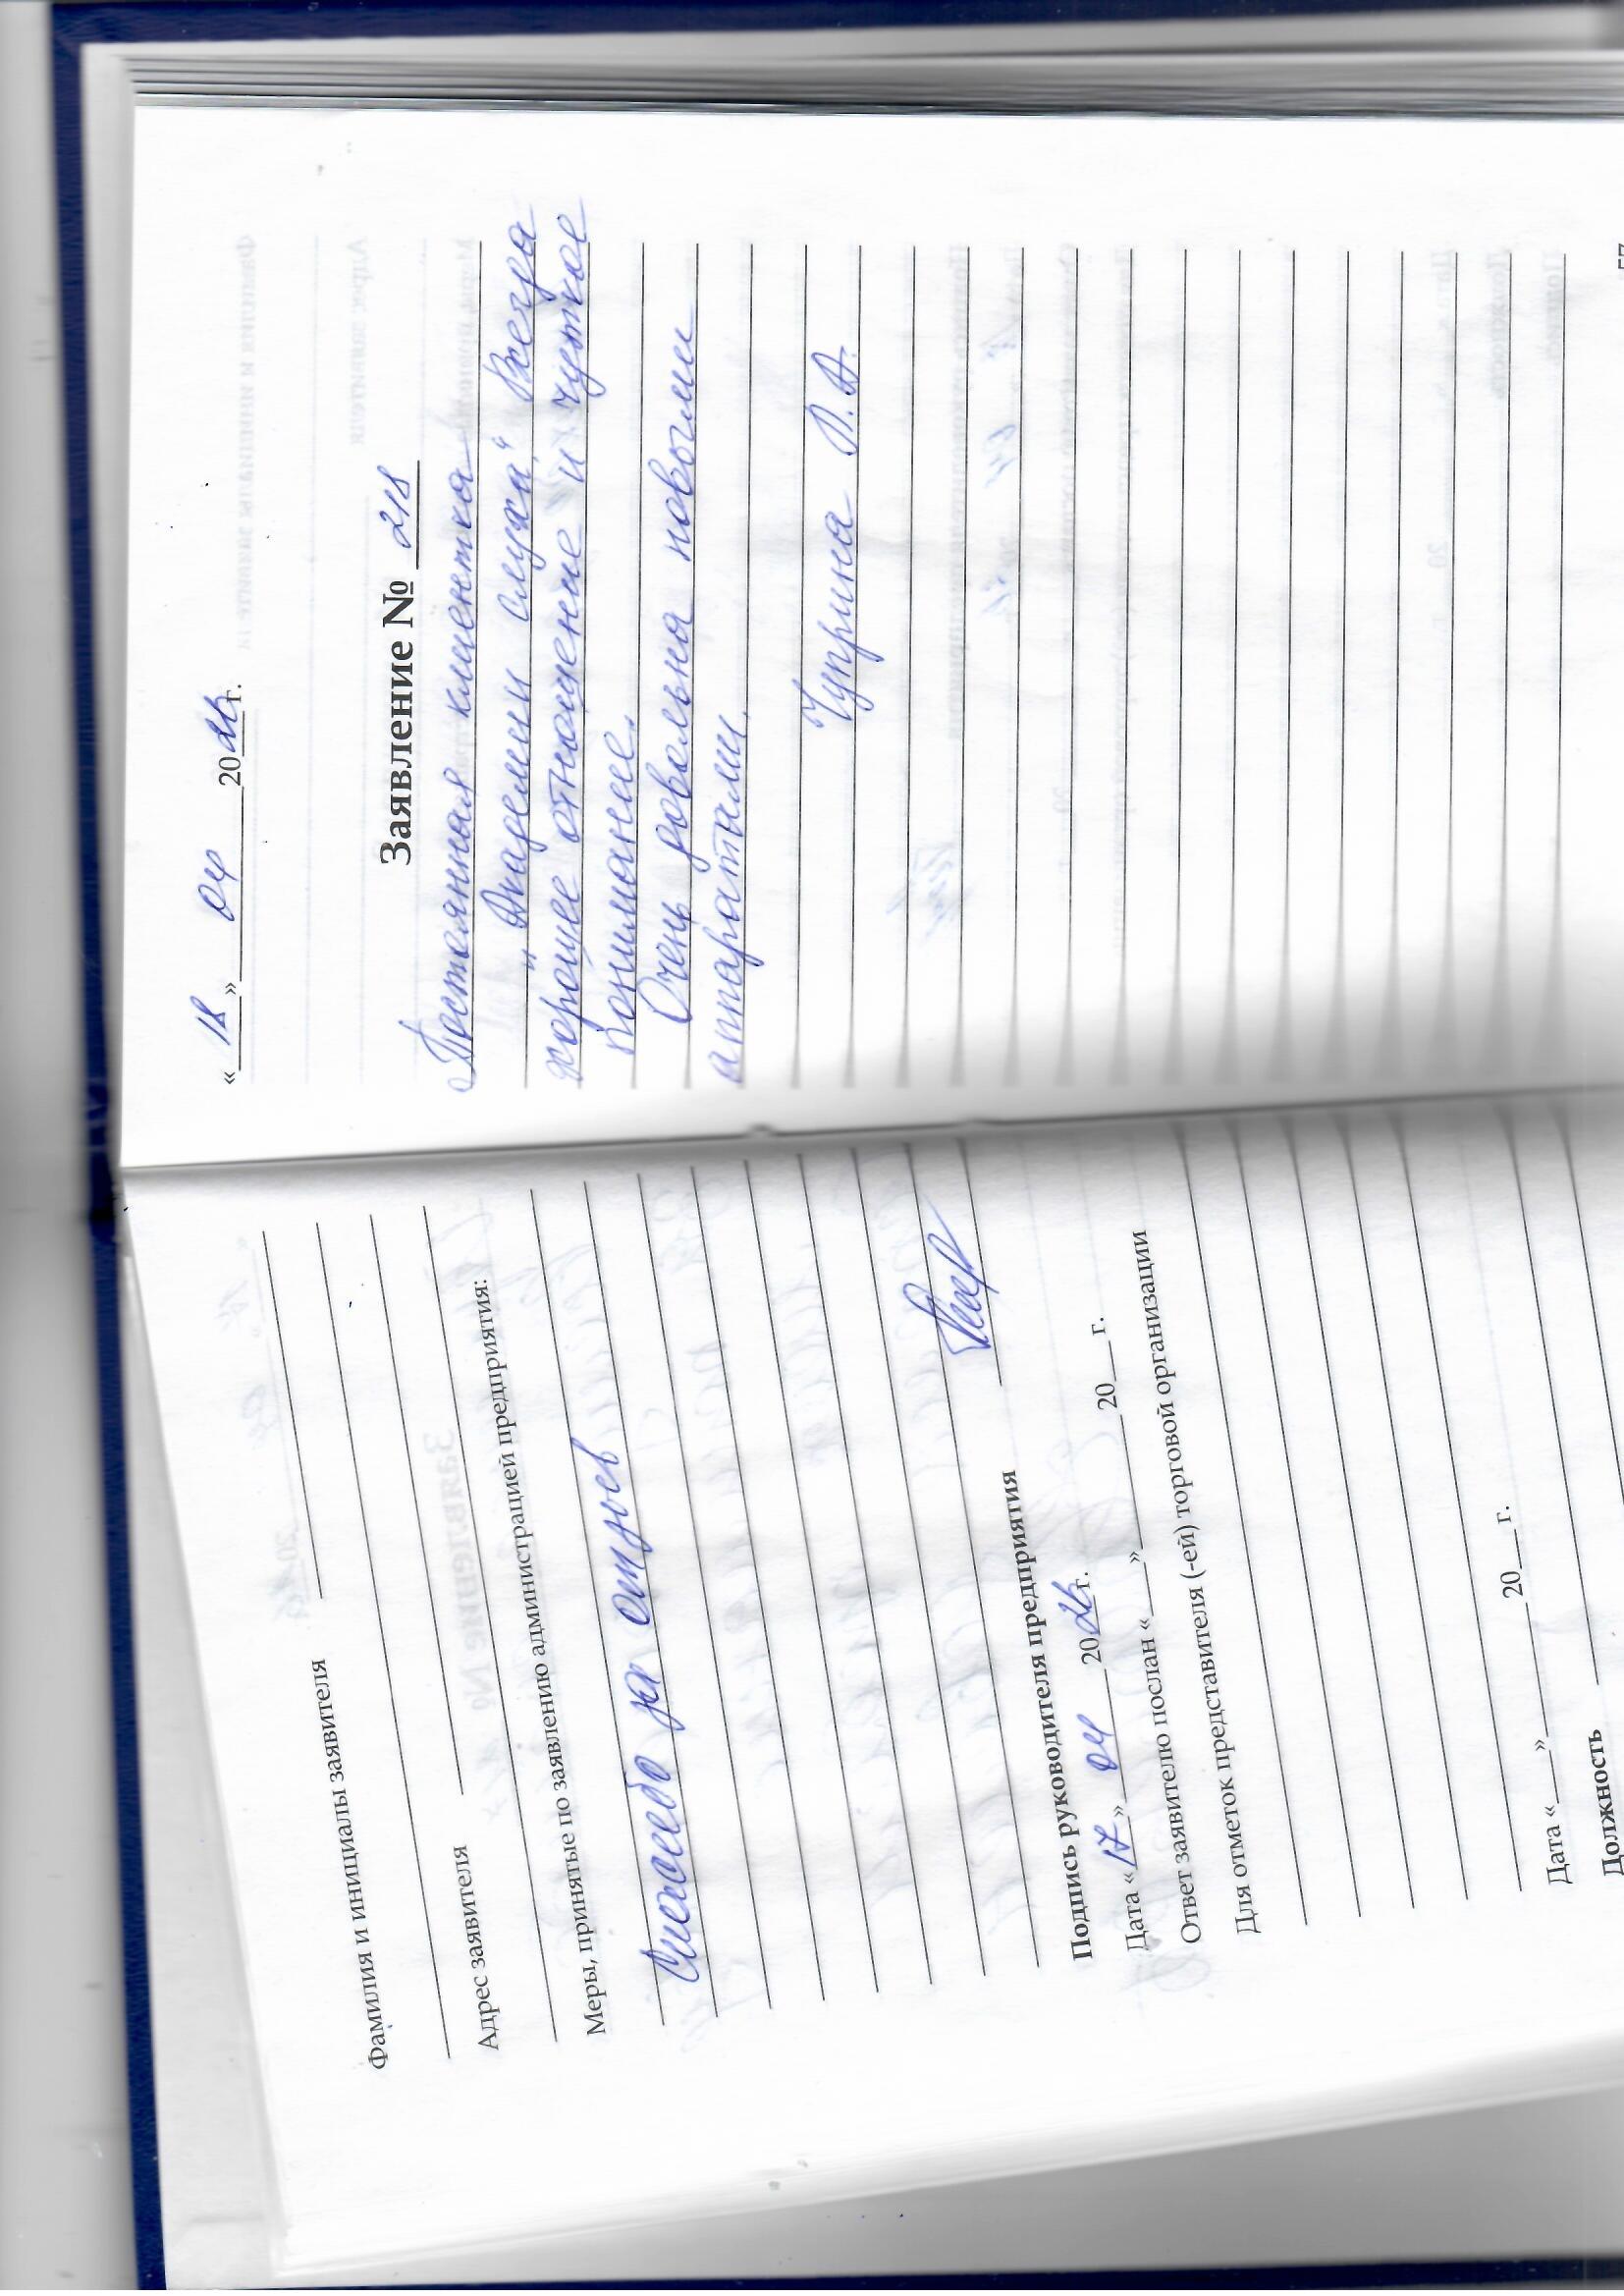 Фамилия и инициалы заявителя
Адрес заявителя
Меры, принятые по заявлению администрацией предприятия:
Спасибо за отзыв
Подпись руководителя предприятия
Дата «17» 04 2026г.
Ответ заявителю послан «___»_______ 20___г.
Для отметок представителя (-ей) торговой организации
Дата «___»_______ 20___г.
Должность
«18» 04 2026г.
Заявление № 218
Постоянная клиентка
"Академии слуха". Всегда
хорошее отношение и чуткое
понимание.
Очень довольна новыми
аппаратами.
Чуприна Л.А.
57